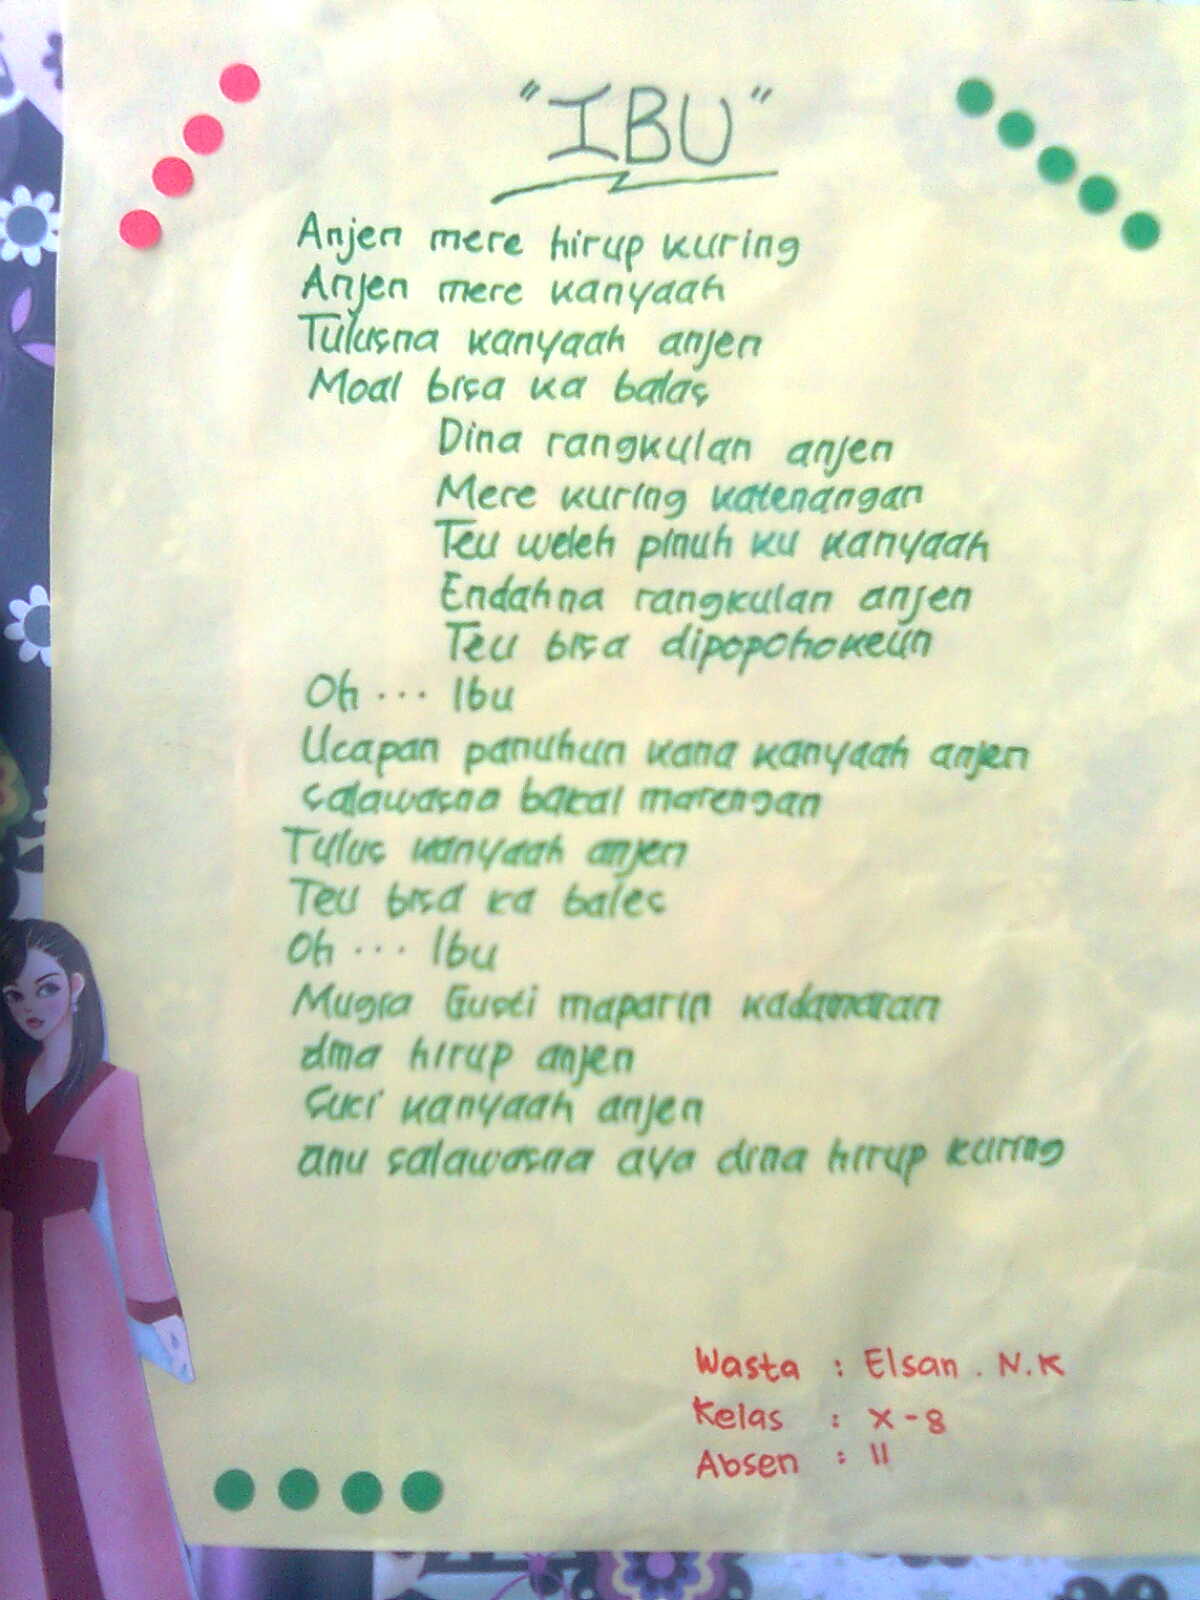 "IBU"
Anjen mere hirup kuring
Anjen mere kanyaah
Tulusna kanyaah anjen
Moal bisa ka balas
Dina rangkulan anjen
Mere kuring katenangan
Teu weleh pinuh ku kanyaah
Endahna rangkulan anjen
Teu bisa dipopohokeun
Oh ... Ibu
Ucapan panuhun kana kanyaah anjen
salawasna bakal marengan
Tulus kanyaah anjen
Teu bisa ka bales
Oh ... Ibu
Mugia Gusti maparin kadamaran
dina hirup anjen
Suci kanyaah anjen
anu salawasna aya dina hirup kuring
Wasta : Elsan . N.K
Kelas : X - 8
Absen : 11